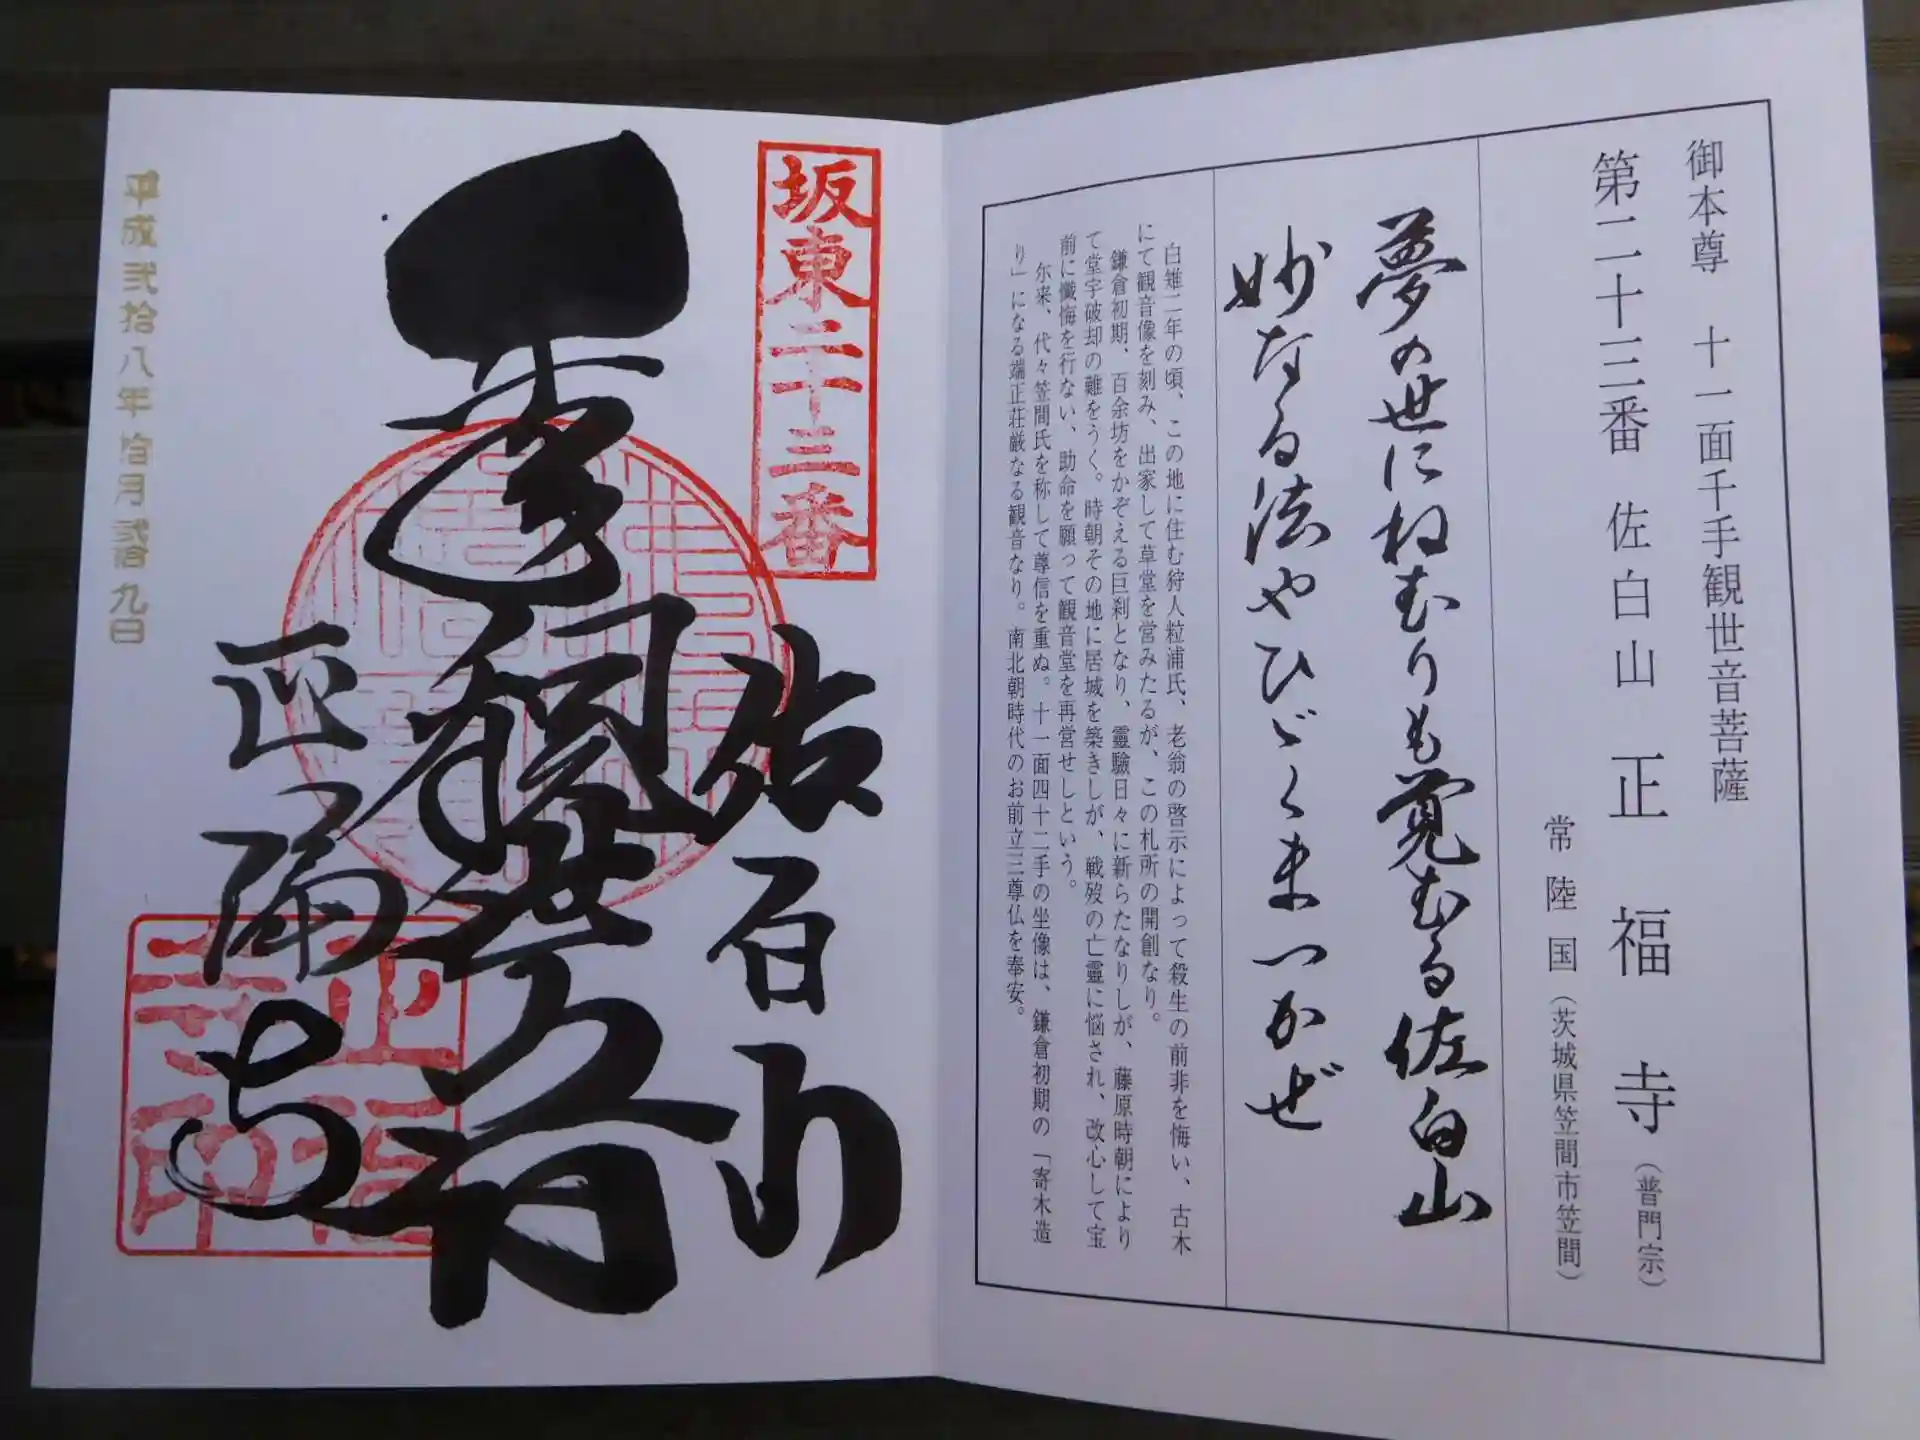 御本尊　十一面千手観世音菩薩
第二十三番　佐白山　正福寺（普門宗）
常陸国（茨城県笠間市笠間）
夢の世にねむりも覚むる佐白山
妙なる法やひゞくまつかぜ
白雉二年の頃、この地に住む狩人粒浦氏、老翁の啓示によって殺生の前非を悔い、古木
にて観音像を刻み、出家して草堂を営みたるが、この札所の開創なり。
鎌倉初期、百余坊をかぞえる巨刹となり、霊験日々に新らたなりしが、藤原時朝により
て堂宇破却の難をうく。時朝その地に居城を築きしが、戦歿の亡霊に悩され、改心して宝
前に懺悔を行ない、助命を願って観音堂を再営せしという。
尓来、代々笠間氏を称して尊信を重ぬ。十一面四十二手の坐像は、鎌倉初期の「寄木造
り」になる端正荘厳なる観音なり。南北朝時代のお前立三尊仏を奉安。
坂東二十三番
佐白山
正福寺
正福寺印
平成弐拾八年拾月弐拾九日